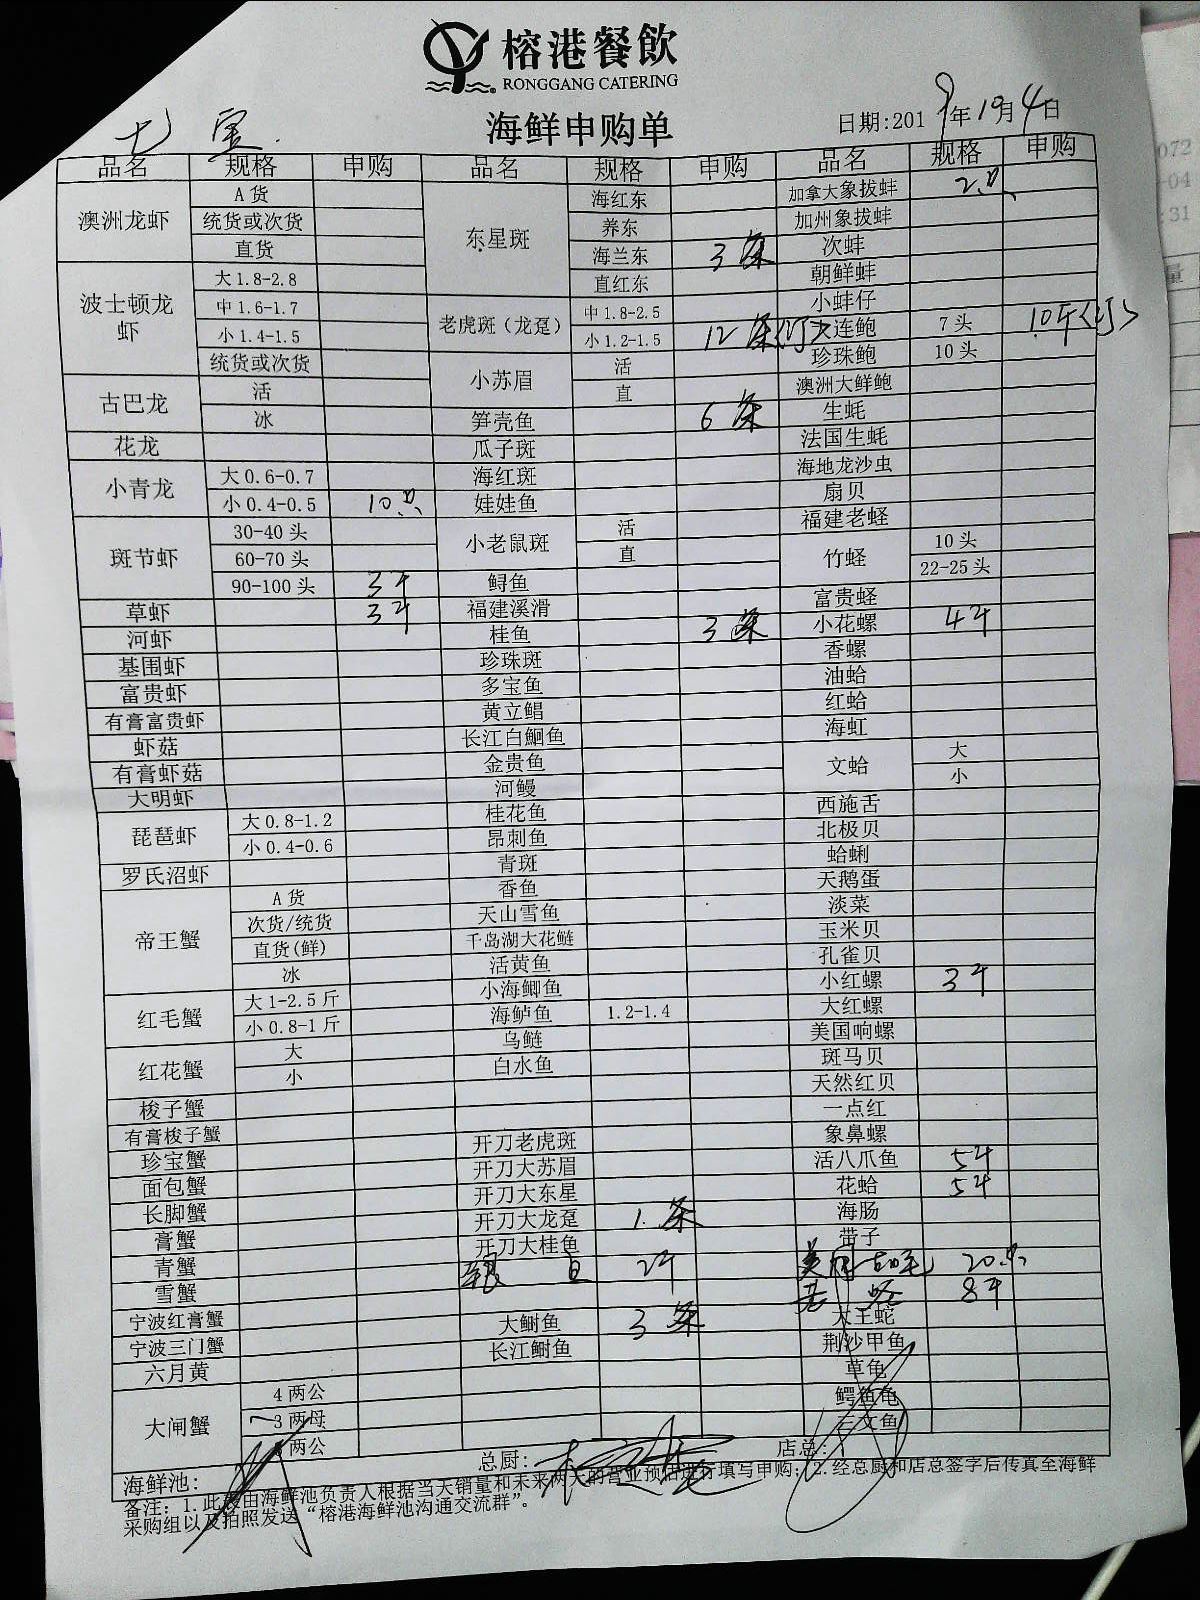 榕港餐飲
RONGGANG CATERING
七宝
海鲜申购单
日期:2019年10月4日
品名 规格 申购 品名 规格 申购 品名 规格 申购
澳洲龙虾 A货
统货或次货
直货
波士顿龙虾 大1.8-2.8
中1.6-1.7
小1.4-1.5
统货或次货
古巴龙 活
冰
花龙
小青龙 大0.6-0.7
小0.4-0.5 10只
斑节虾 30-40头
60-70头
90-100头 3斤
草虾 3斤
河虾
基围虾
富贵虾
有膏富贵虾
虾菇
有膏虾菇
大明虾
琵琶虾 大0.8-1.2
小0.4-0.6
罗氏沼虾
帝王蟹 A货
次货/统货
直货(鲜)
冰
红毛蟹 大1-2.5斤
小0.8-1斤
红花蟹 大
小
梭子蟹
有膏梭子蟹
珍宝蟹
面包蟹
长脚蟹
膏蟹
青蟹
雪蟹
宁波红膏蟹
宁波三门蟹
六月黄
大闸蟹 4两公
3两母
两公
东星斑 海红东
养东
海兰东 3条
直红东
老虎斑（龙趸） 中1.8-2.5
小1.2-1.5 12条
小苏眉 活
直
笋壳鱼 6条
瓜子斑
海红斑
娃娃鱼
小老鼠斑 活
直
鲟鱼
福建溪滑
桂鱼 3条
珍珠斑
多宝鱼
黄立鲳
长江白鮰鱼
金贵鱼
河鳗
桂花鱼
昂刺鱼
青斑
香鱼
天山雪鱼
千岛湖大花鲢
活黄鱼
小海鲫鱼
海鲈鱼 1.2-1.4
乌鲢
白水鱼
开刀老虎斑
开刀大苏眉
开刀大东星
开刀大龙趸 1条
开刀大桂鱼
2斤
大鲥鱼 3条
长江鲥鱼
加拿大象拔蚌 2只
加州象拔蚌
次蚌
朝鲜蚌
小蚌仔
大连鲍 7头 10斤
珍珠鲍 10头
澳洲大鲜鲍
生蚝
法国生蚝
海地龙沙虫
扇贝
福建老蛏
竹蛏 10头
22-25头
富贵蛏
小花螺 4斤
香螺
油蛤
红蛤
海虹
文蛤 大
小
西施舌
北极贝
蛤蜊
天鹅蛋
淡菜
玉米贝
孔雀贝
小红螺 3斤
大红螺
美国响螺
斑马贝
天然红贝
一点红
象鼻螺
活八爪鱼 5斤
花蛤 5斤
海肠
带子
美国生蚝 20只
老蛏 8斤
大王蛇
荆沙甲鱼
草龟
鳄鱼龟
三文鱼
海鲜池: 总厨: 店总:
备注: 1.此表由海鲜池负责人根据当天销量和未来两天的营业预估进行填写申购; 2.经总厨和店总签字后传真至海鲜
采购组以及拍照发送“榕港海鲜池沟通交流群”。
072
-04
:31
量